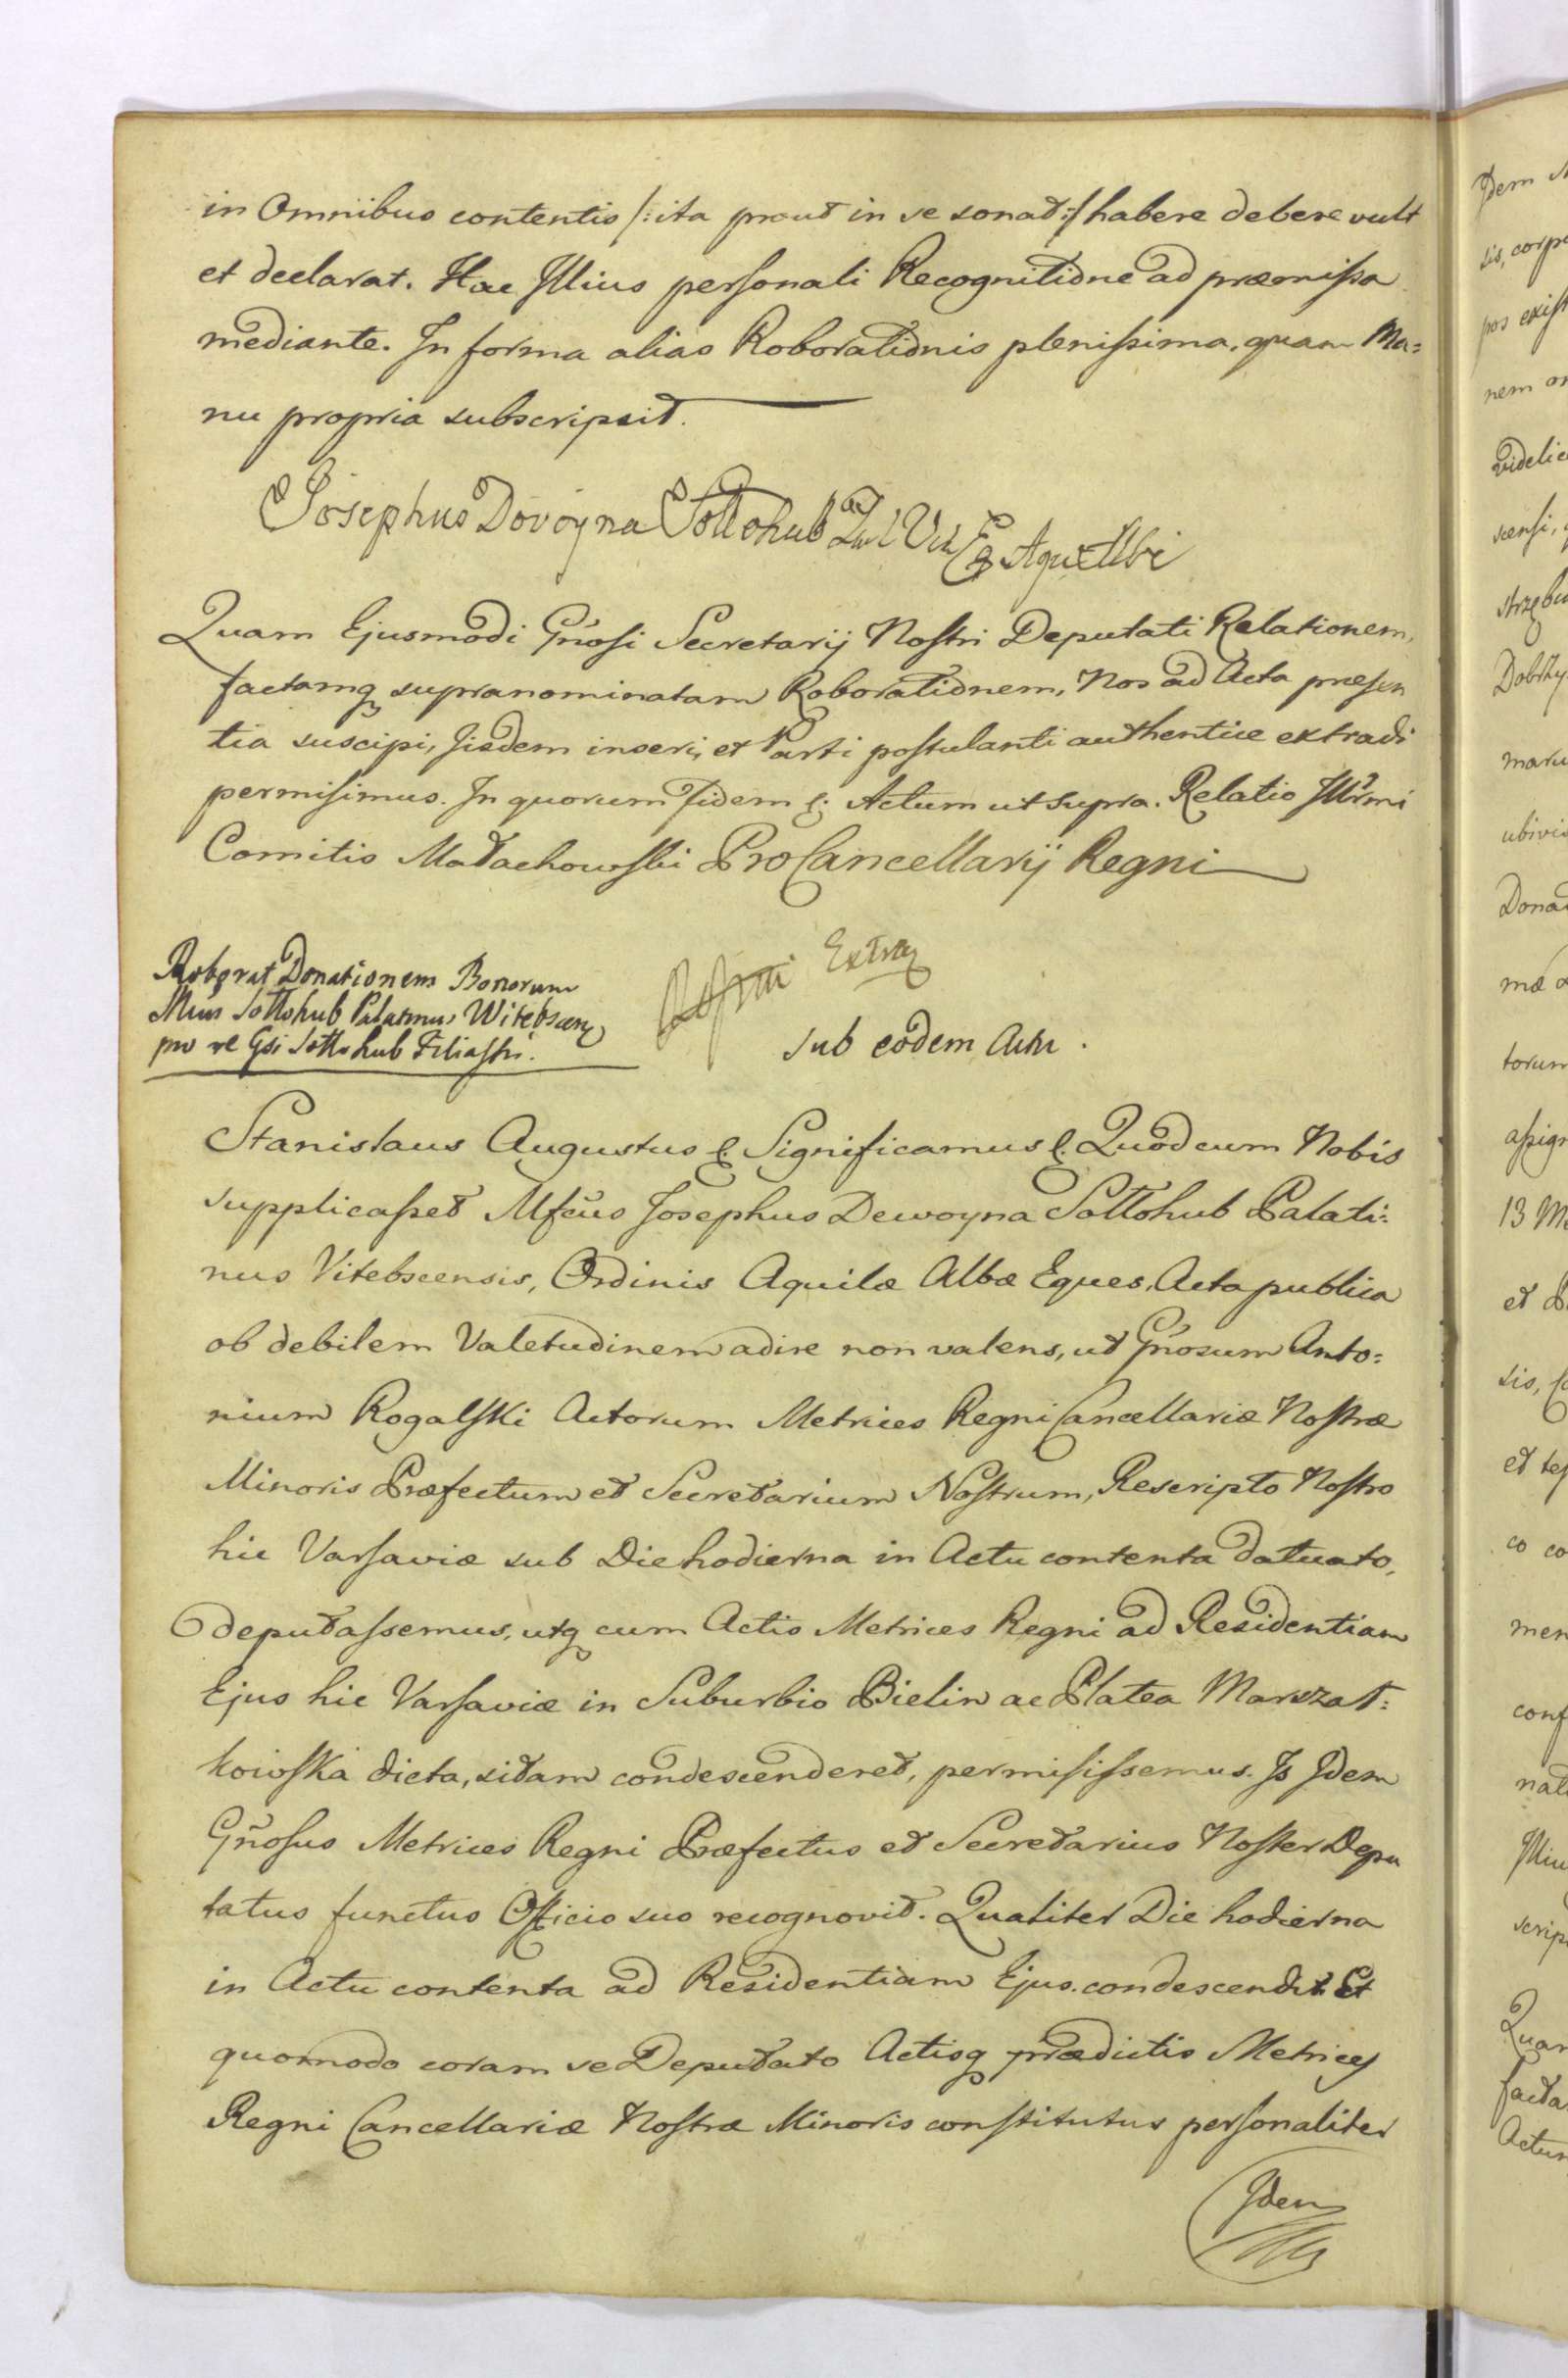 in Omnibus contentis /: ita prout in se sonat :/ habere debere vult
et declarat. Hac Illius personali Recognitione ad præmissa
mediante. In forma alias Roborationis plenissima, quam Ma=
nu propria subscripsit.
Josephus Dovoyna Sołłohub Pal Vit Eq Aquae Albi
Quam Ejusmodi Gnosi Secretarij Nostri Deputati Relationem,
factamq supranominatam Roborationem, Nos ad Acta præsen
tia suscipi, Iisdem inseri, et Parti postulanti authentice extradi
permisimus. In quorum fidem &. Actum ut supra. Relatio Illrmi
Comitis Małachowski ProCancellarij Regni
Roborat Donationem Bonorum
Mcus Sołłohub Palatinus Witebscens
pro re Gsi Sołłohub Filiastri.
Extra
sub eodem Actu.
Stanislaus Augustus &. Significamus &. Quod cum Nobis
supplicasset Mfcus Josephus Dewoyna Sołłohub Palati=
nus Vitebscensis, Ordinis Aquilæ Albæ Eques, Acta publica
ob debilem Valetudinem adire non valens, ut Gnosum Anto=
nium Rogalski Actorum Metrices Regni Cancellariæ Nostræ
Minoris Præfectum et Secretarium Nostrum, Rescripto Nostro
hic Varsaviæ sub Die hodierna in Actu contenta datuato,
deputassemus, utq cum Actis Metrices Regni ad Residentiam
Ejus hic Varsaviæ in Suburbio Bielin ac Platea Marszał=
kowska dicta, sitam condescenderet, permisissemus. Is Idem
Gnosus Metrices Regni Præfectus et Secretarius Noster Depu
tatus functus Officio suo recognovit. Qualiter Die hodierna
in Actu contenta ad Residentiam Ejus condescendit Et
quomodo coram se Deputato Actisq prædictis Metrices
Regni Cancellariæ Nostræ Minoris constitutus personaliter
Idem